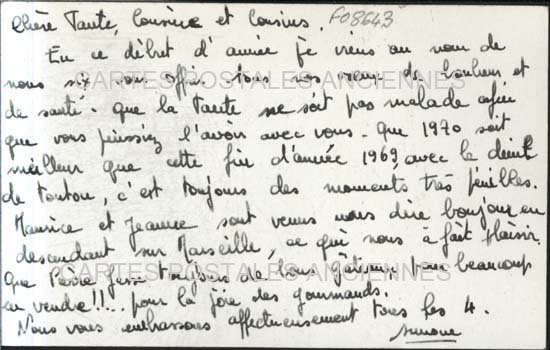 Chère Tante, Cousine et Cousins. F08643
En ce début d'année je viens au nom de
nous six vous offrir tous nos vœux de bonheur et
CARTES POSTALES ANCIENNES
de santé. que la Tante ne soit pas malade afin
que vous puissiez l'avoir avec vous. que 1970 soit
meilleur que cette fin d'année 1969, avec le décès
de tonton, c'est toujours des moments très pénibles.
Maurice et Jeanne sont venus nous dire bonjour en
descendant sur Marseille, ce qui nous a fait plaisir.
CARTES POSTALES ANCIENNES
Que Pierre fasse toujours de bons gâteaux pour beaucoup
en vendre!!... pour la joie des gourmands.
Nous vous embrassons affectueusement tous les 4.
Simone